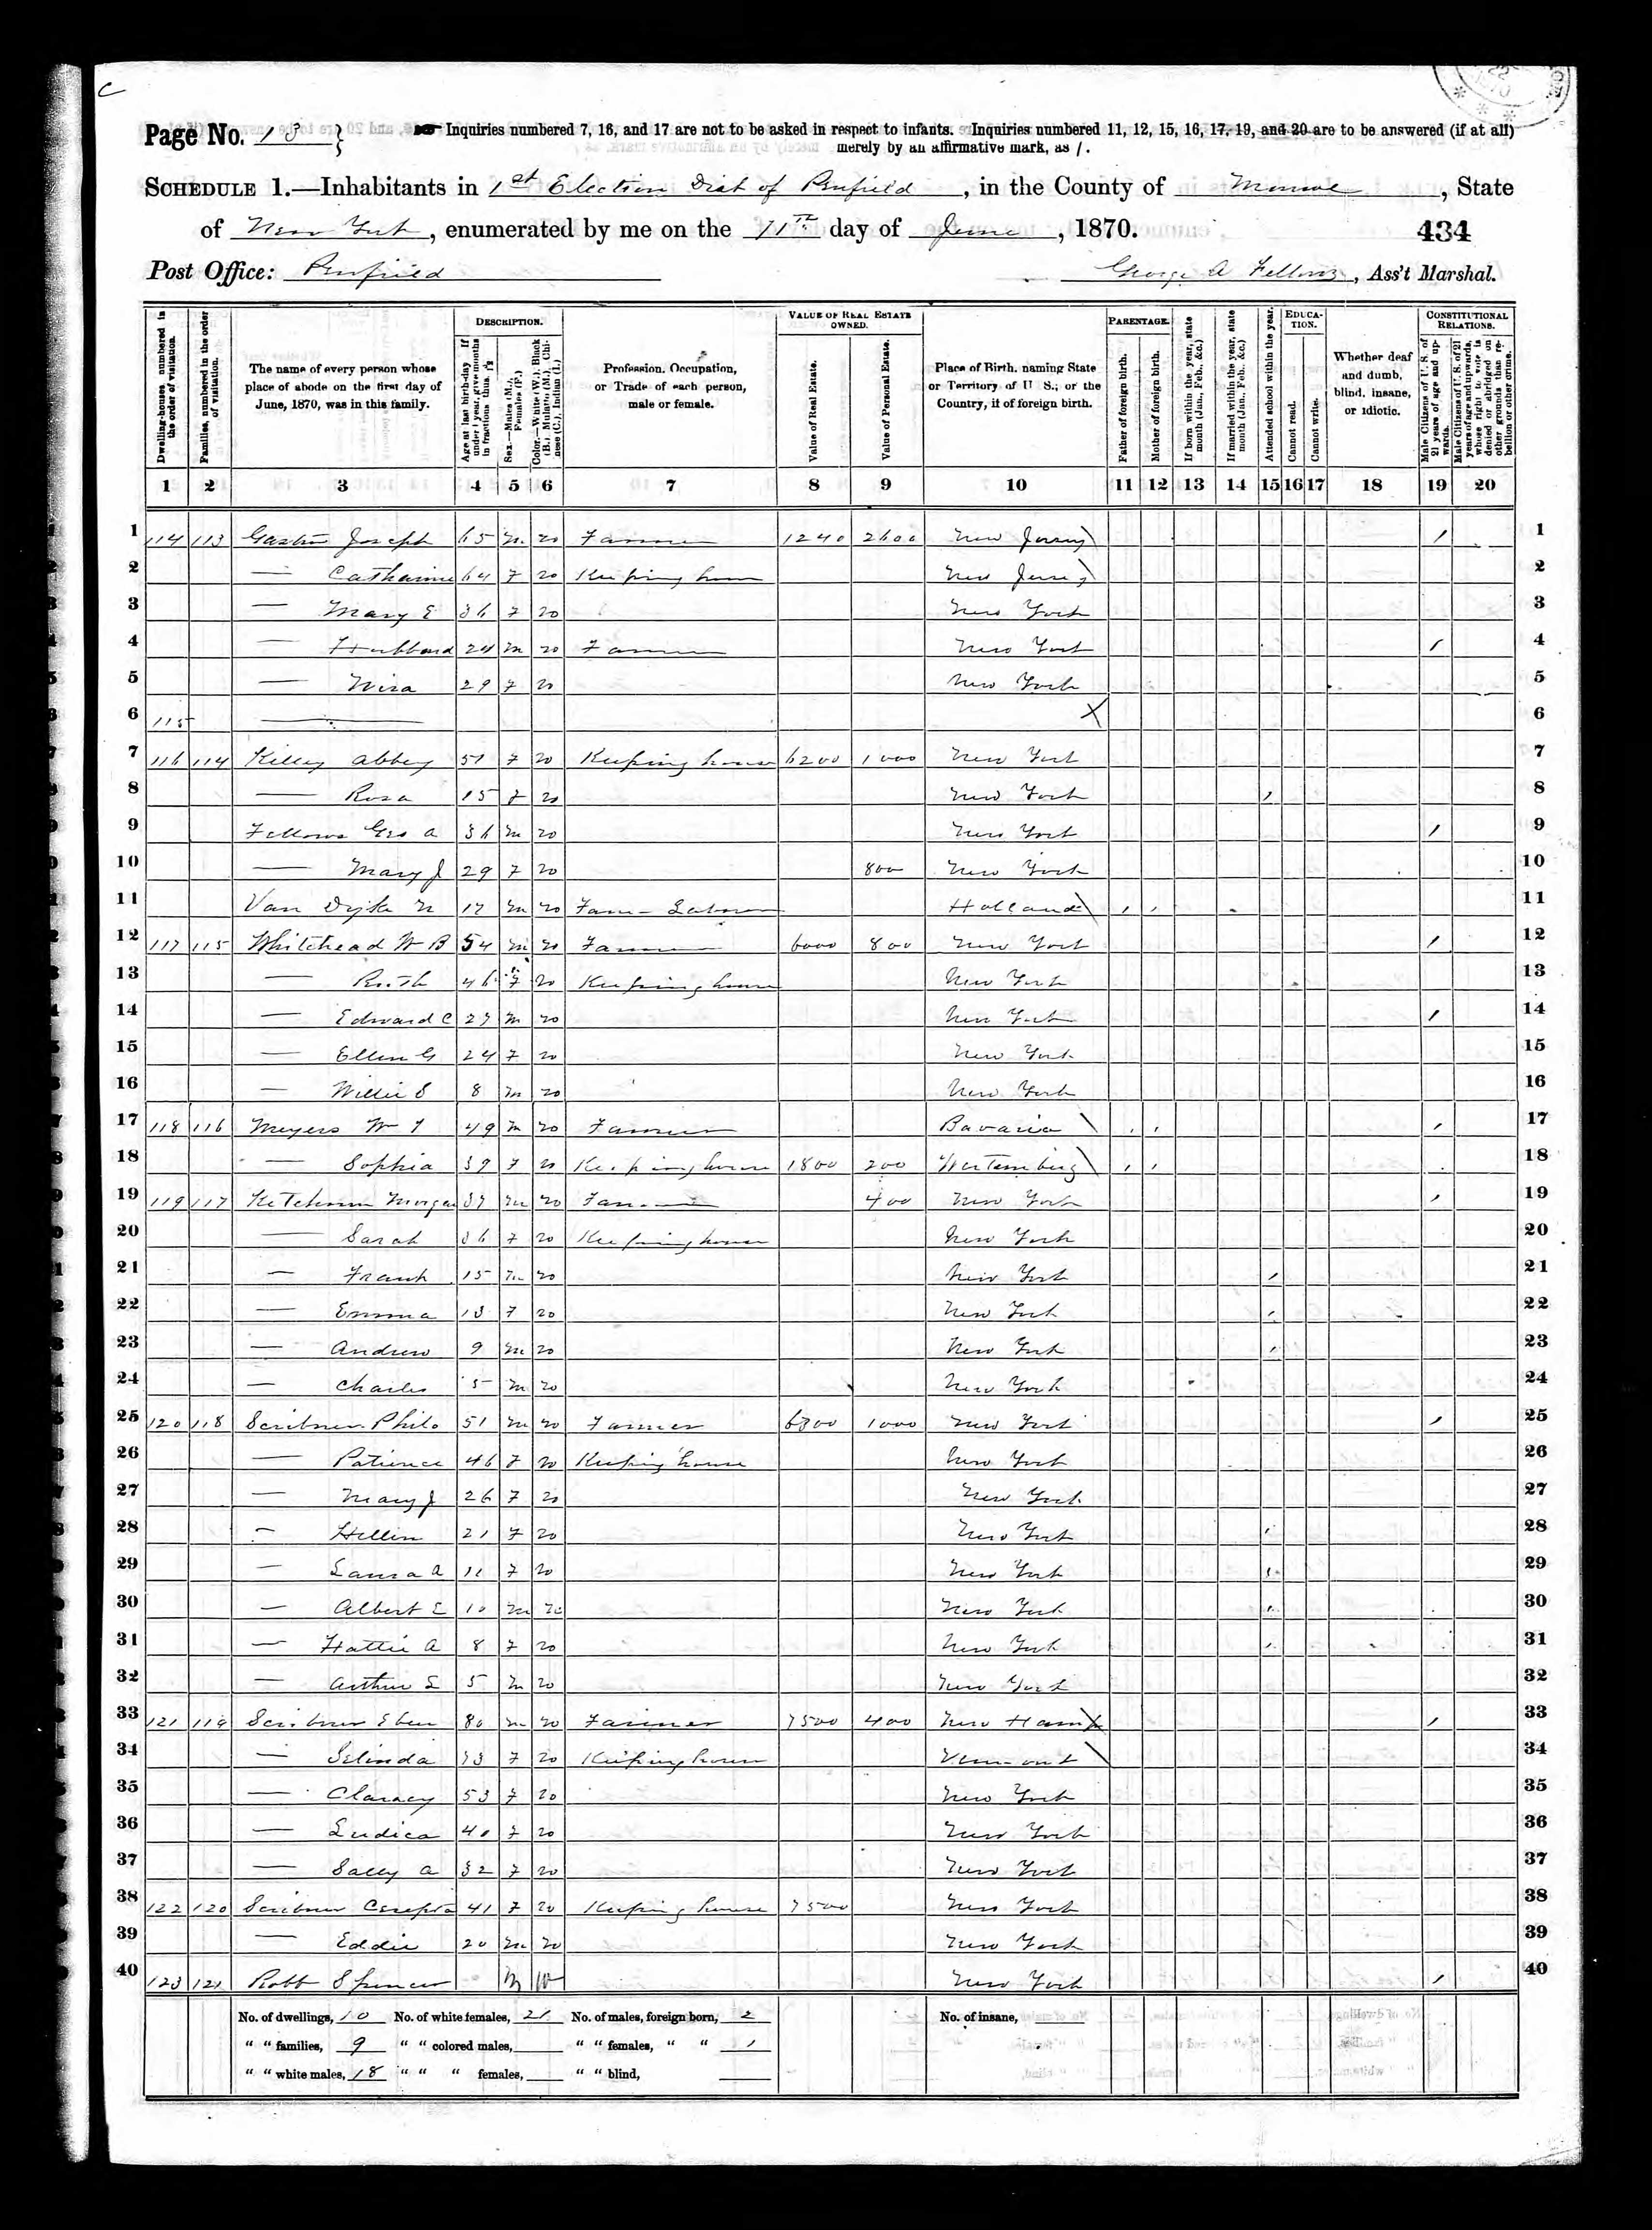 C
Page No. 18
Inquiries numbered 7, 16, and 17 are not to be asked in respect to infants. Inquiries numbered 11, 12, 15, 16, 17, 19, and 20 are to be answered (if at all)
merely by an affirmative mark, as /.
SCHEDULE 1.—Inhabitants in 1st Election Dist of Penfield, in the County of Monroe, State
of New York, enumerated by me on the 11th day of June, 1870. 434
Post Office: Penfield George A Fellows, Ass't Marshal.
Dwelling-houses, numbered in the order of visitation.
Families, numbered in the order of visitation.
The name of every person whose place of abode on the first day of June, 1870, was in this family.
DESCRIPTION.
Age at last birth-day. If under 1 year, give months in fractions, thus, 3/12
Sex.—Males (M.), Females (F.)
Color.—White (W.), Black (B.), Mulatto (M.), Chinese (C.), Indian (I.)
Profession, Occupation, or Trade of each person, male or female.
VALUE OF REAL ESTATE OWNED.
Value of Real Estate.
Value of Personal Estate.
Place of Birth, naming State or Territory of U. S.; or the Country, if of foreign birth.
PARENTAGE.
Father of foreign birth.
Mother of foreign birth.
If born within the year, state month (Jan., Feb., &c.)
If married within the year, state month (Jan., Feb., &c.)
Attended school within the year.
EDUCATION.
Cannot read.
Cannot write.
Whether deaf and dumb, blind, insane, or idiotic.
CONSTITUTIONAL RELATIONS.
Male Citizens of U. S. of 21 years of age and upwards.
Male Citizens of U. S. of 21 years of age and upwards, whose right to vote is denied or abridged on other grounds than rebellion or other crime.
1 2 3 4 5 6 7 8 9 10 11 12 13 14 15 16 17 18 19 20
1 114 113 Joseph 65 M W Farmer 1240 2600 New Jersey / 1
2 — Catharine 64 F W Keeping house New Jersey 2
3 — Mary E 36 F W New York 3
4 — Hubbard 24 M W Farmer New York / 4
5 — 29 F W New York 5
6 115 — X 6
7 116 114 Killey Abbey 51 F W Keeping house 6200 1000 New York 7
8 — Rosa 15 F W New York / 8
9 Fellows Geo A 36 M W New York / 9
10 — Mary J 29 F W 800 New York 10
11 Van Dyke N 17 M W Farm Laborer Holland / / 11
12 117 115 Whitehead W B 54 M W Farmer 6000 800 New York / 12
13 — Ruth 46 F W Keeping house New York 13
14 — Edward C 27 M W New York / 14
15 — Ellen G 24 F W New York 15
16 — Willie S 8 M W New York 16
17 118 116 Meyers Wm 49 M W Farmer Bavaria / / / 17
18 — Sophia 39 F W Keeping house 1800 200 Wertemberg / / 18
19 119 117 Ketchum Morgan 37 M W Farmer 400 New York / 19
20 — Sarah 36 F W Keeping house New York 20
21 — Frank 15 M W New York / 21
22 — Emma 13 F W New York / 22
23 — Andrew 9 M W New York / 23
24 — Charles 5 M W New York 24
25 120 118 Scribner Philo 51 M W Farmer 6300 1000 New York / 25
26 — Patience 46 F W Keeping house New York 26
27 — Mary J 26 F W New York 27
28 — Hellen 21 F W New York / 28
29 — Laura A 11 F W New York / 29
30 — Albert E 10 M W New York / 30
31 — Hattie A 8 F W New York / 31
32 — Arthur L 5 M W New York 32
33 121 119 Scribner Eben 80 M W Farmer 7500 400 New Hamp / 33
34 — 73 F W Keeping house Vermont 34
35 — Claracy 53 F W New York 35
36 — Ludica 40 F W New York 36
37 — Sally A 32 F W New York 37
38 122 120 Scribner 41 F W Keeping house 7500 New York 38
39 — Eddie 20 M W New York 39
40 123 121 Robb Spencer M W New York / 40
No. of dwellings, 10 No. of white females, 21 No. of males, foreign born, 2 No. of insane,
" " families, 9 " " colored males, " " females, " " 1
" " white males, 18 " " " females, " " blind,